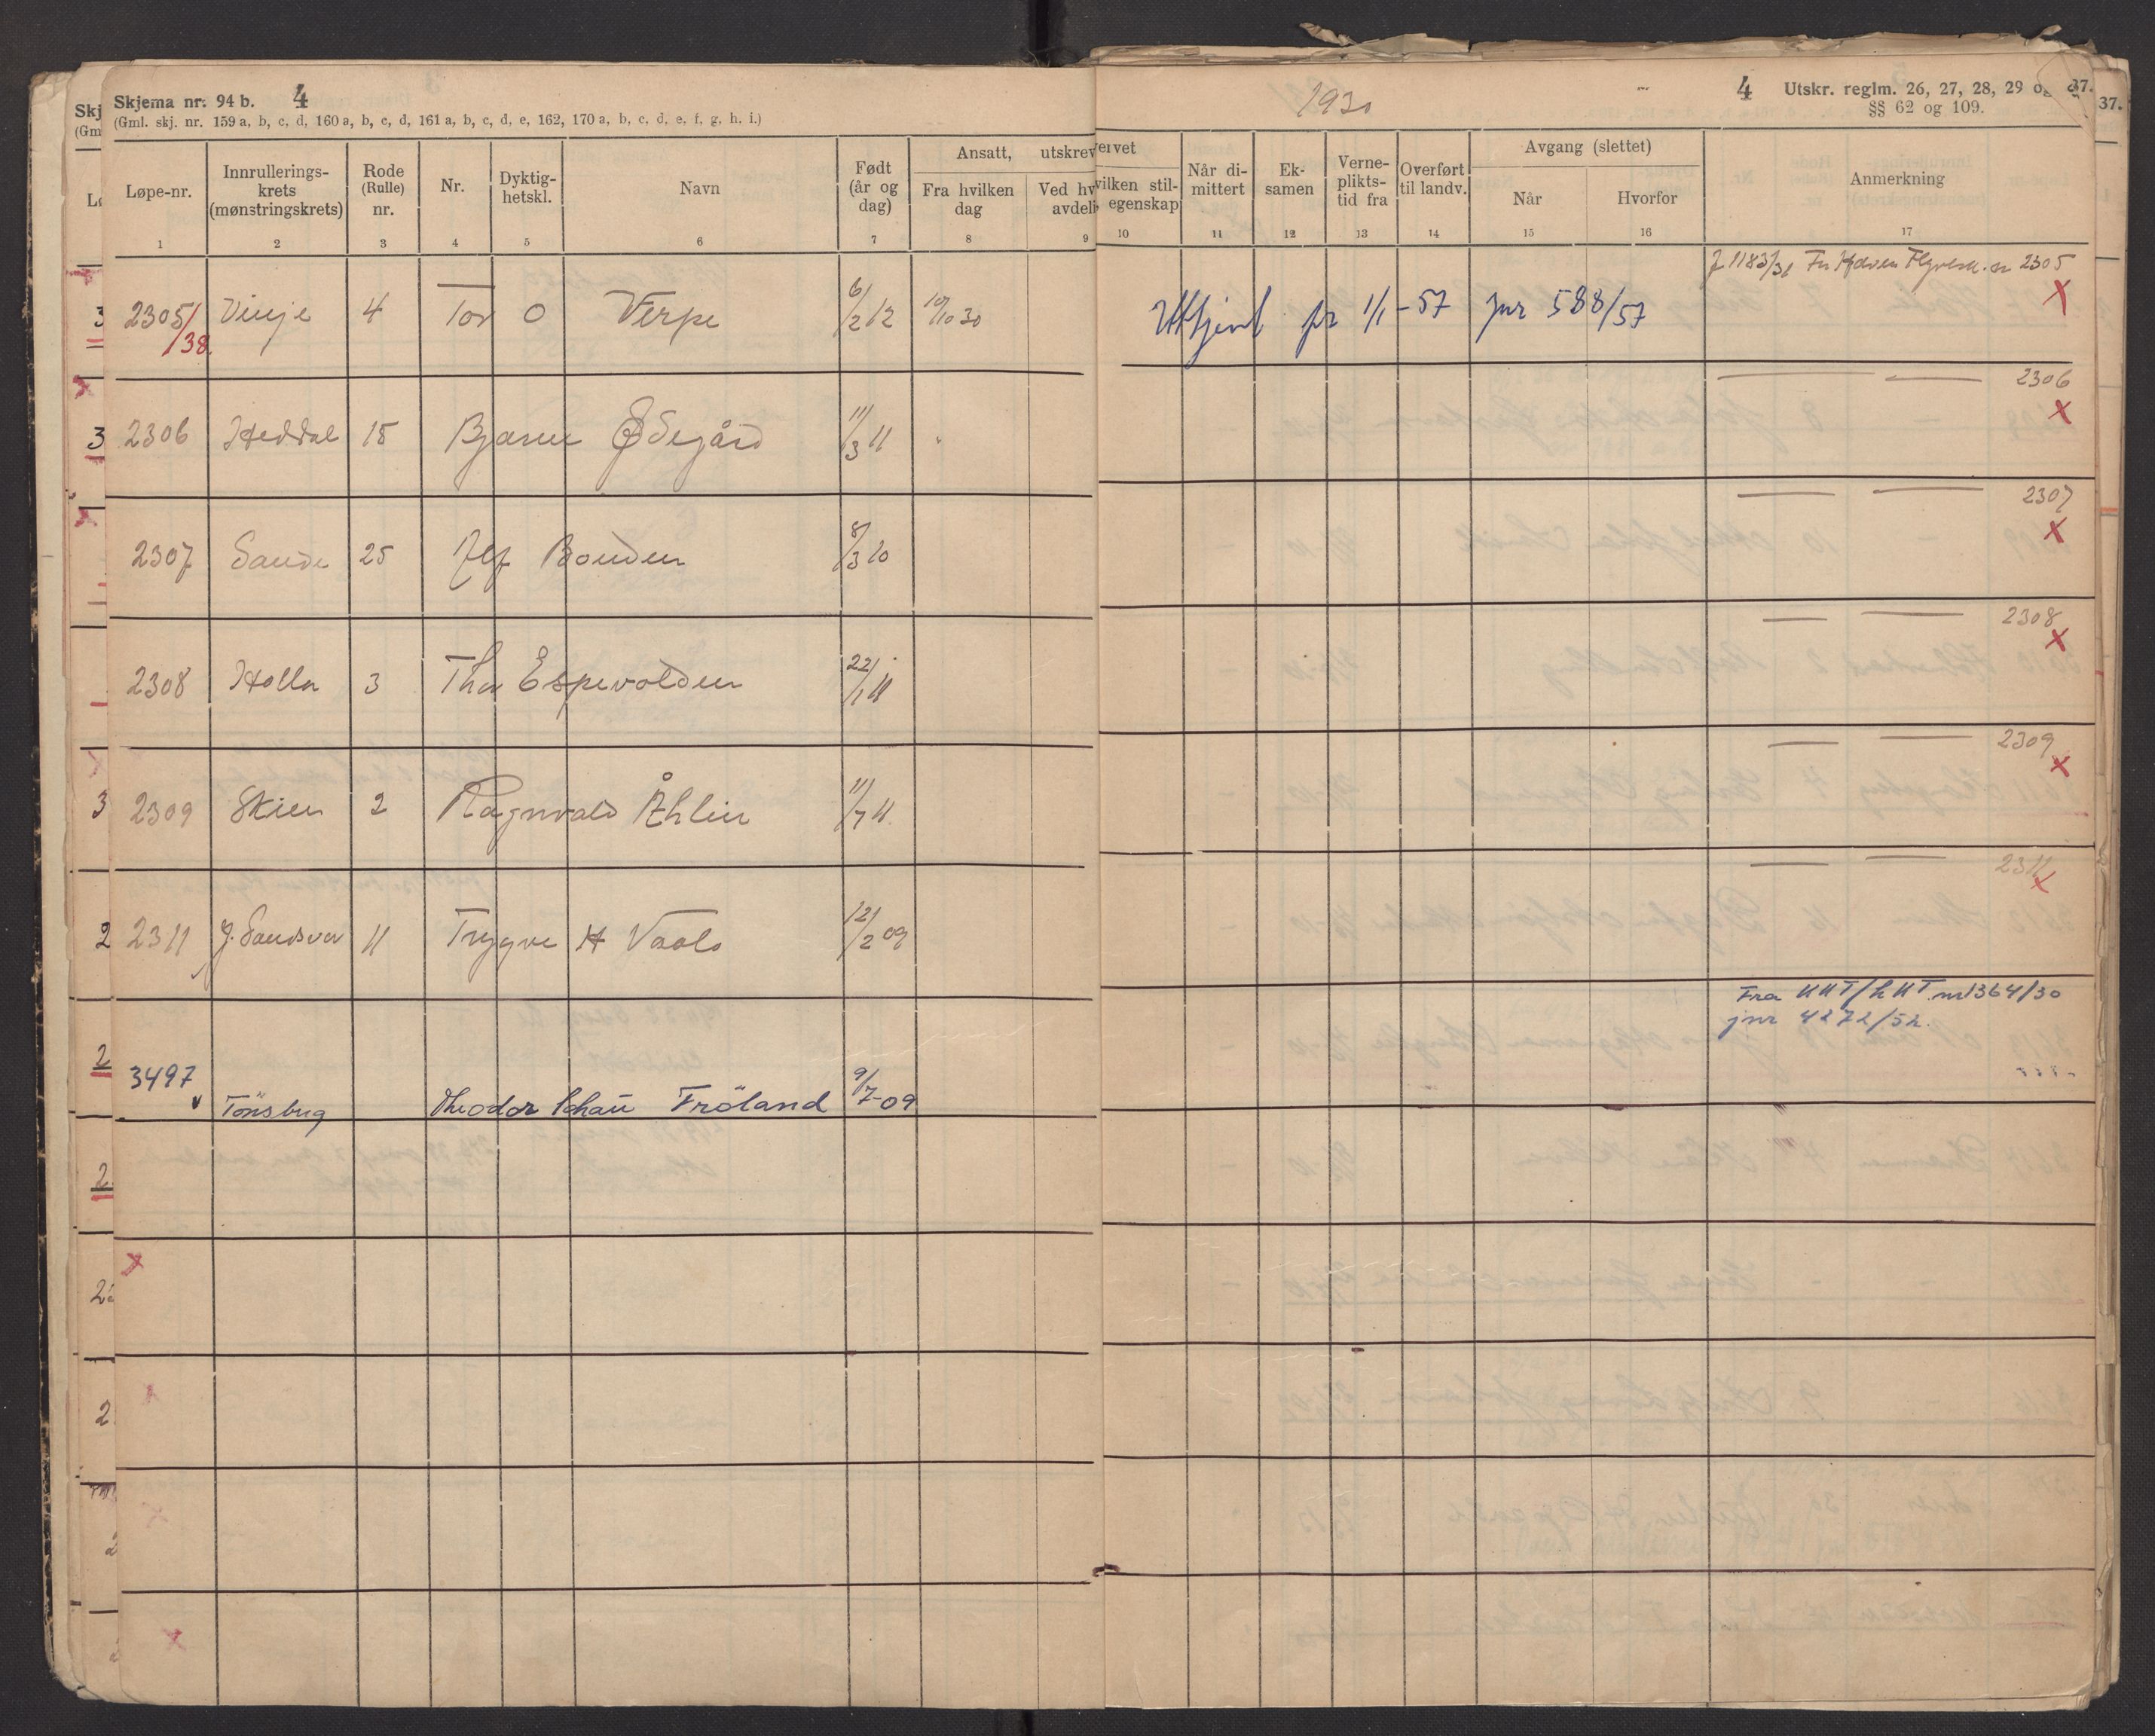 Skjema nr. 94 b. 4
(Gml. skj. nr. 159 a, b, c, d, 160 a, b, c, d, 161 a, b, c, d, e, 162, 170 a, b, c, d, e, f, g, h, i.)
1930
4 Utskr. reglm. 26, 27, 28, 29 og 37.
§§ 62 og 109.
37.
Løpe-nr. Innrullerings-krets (mønstringskrets) Rode (Rulle) nr. Nr. Dyktig-hetskl. Navn Født (år og dag) Ansatt, utskrev
Fra hvilken dag Ved hv avdeli
ervet
vilken stil- egenskap Når di-mittert Ek-samen Verne-plikts-tid fra Overført til landv. Avgang (slettet) Når Hvorfor Anmerkning
1 2 3 4 5 6 7 8 9 10 11 12 13 14 15 16 17
2305/38 Vinje 4 Tor O Verpe 6/2 12 10/10 30 pr 1/1-57 jnr 588/57 J 1183/31 2305 X
2306 Heddal 18 Bjarne Ødegård 11/3 11 2306 X
2307 Sande 25 Bonden 8/3 10 2307 X
2308 Holla 3 Thor Espevolden 22/1 11 2308 X
2309 Skien 2 Ragnvald Åhlin 11/7 11 2309 X
2311 Sandsver 11 Trygve H 12/2 09 2311 X
Fra UUT/LUT nr 1364/30
jnr 4272/52.
3497
Tönsberg Theodor Schau Fröland 9/7-09